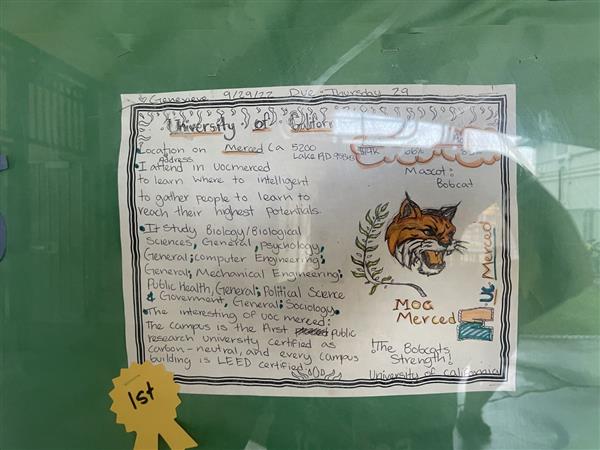 Genevieve 9/29/22 Due: Thursday 29
University of Californ
Location on Merced Ca 5200
Address Lake RD. 95343
$14k
Mascot:
Bobcat
I attend in uocmerced
to learn where to intelligent
to gather people to learn to
reach their highest potentials.
It study Biology/Biological
Sciences, General; psychology,
General; computer Engineering;
General; Mechanical Engineering;
Public Health, General; Political Science
& Government, General; Sociology.
The interesting of uoc merced:
The campus is the first public
research university certified as
carbon-neutral, and every campus
building is LEED certified.
MOG
Merced
UC Merced
!The Bobcats
Strength!
University of California
1st